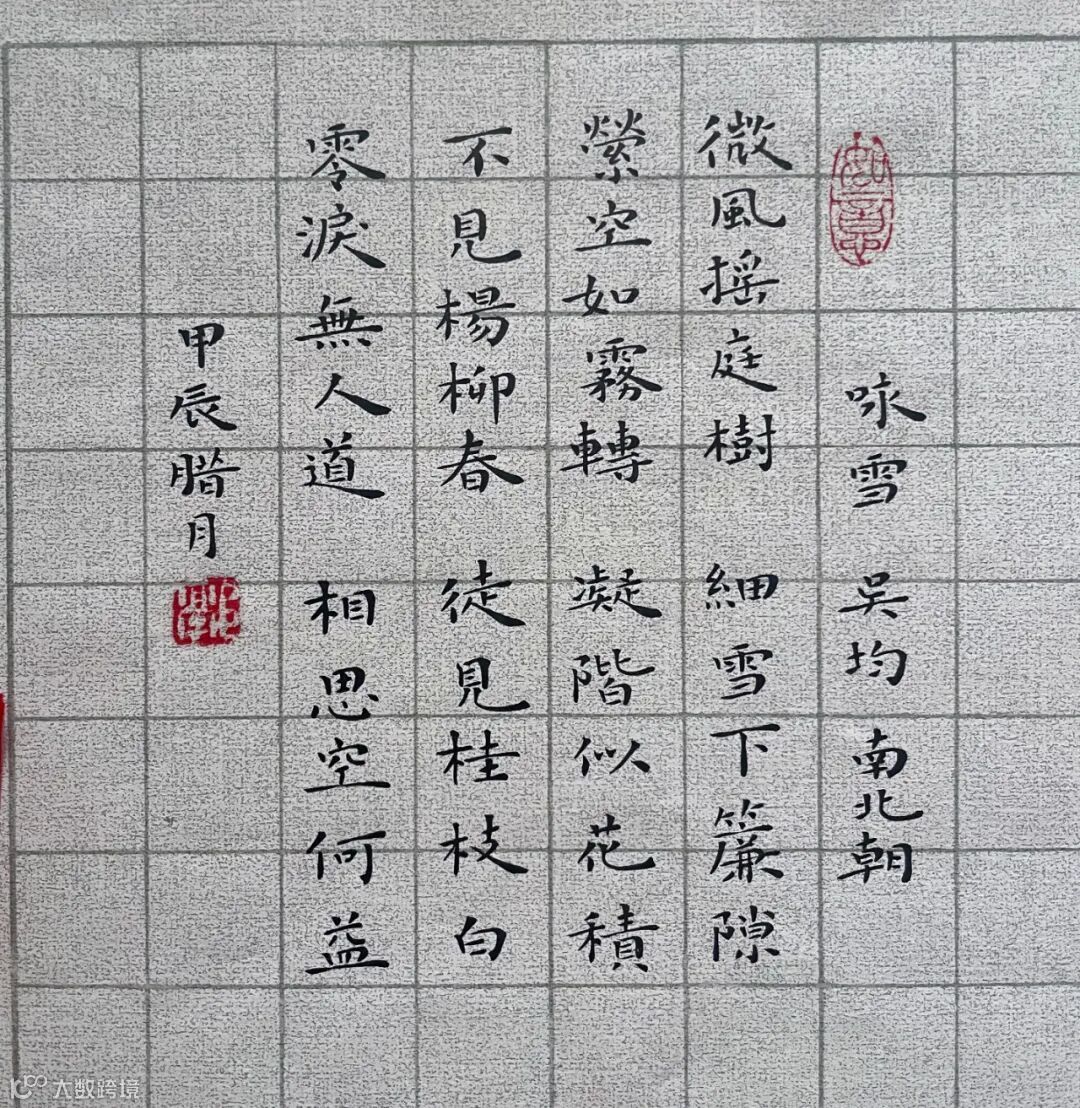 咏雪 吳均 南北朝
微風摇庭樹 細雪下簾隙
縈空如霧轉 凝階似花積
不見楊柳春 徒見桂枝白
零淚無人道 相思空何益
甲辰腊月
大数跨境